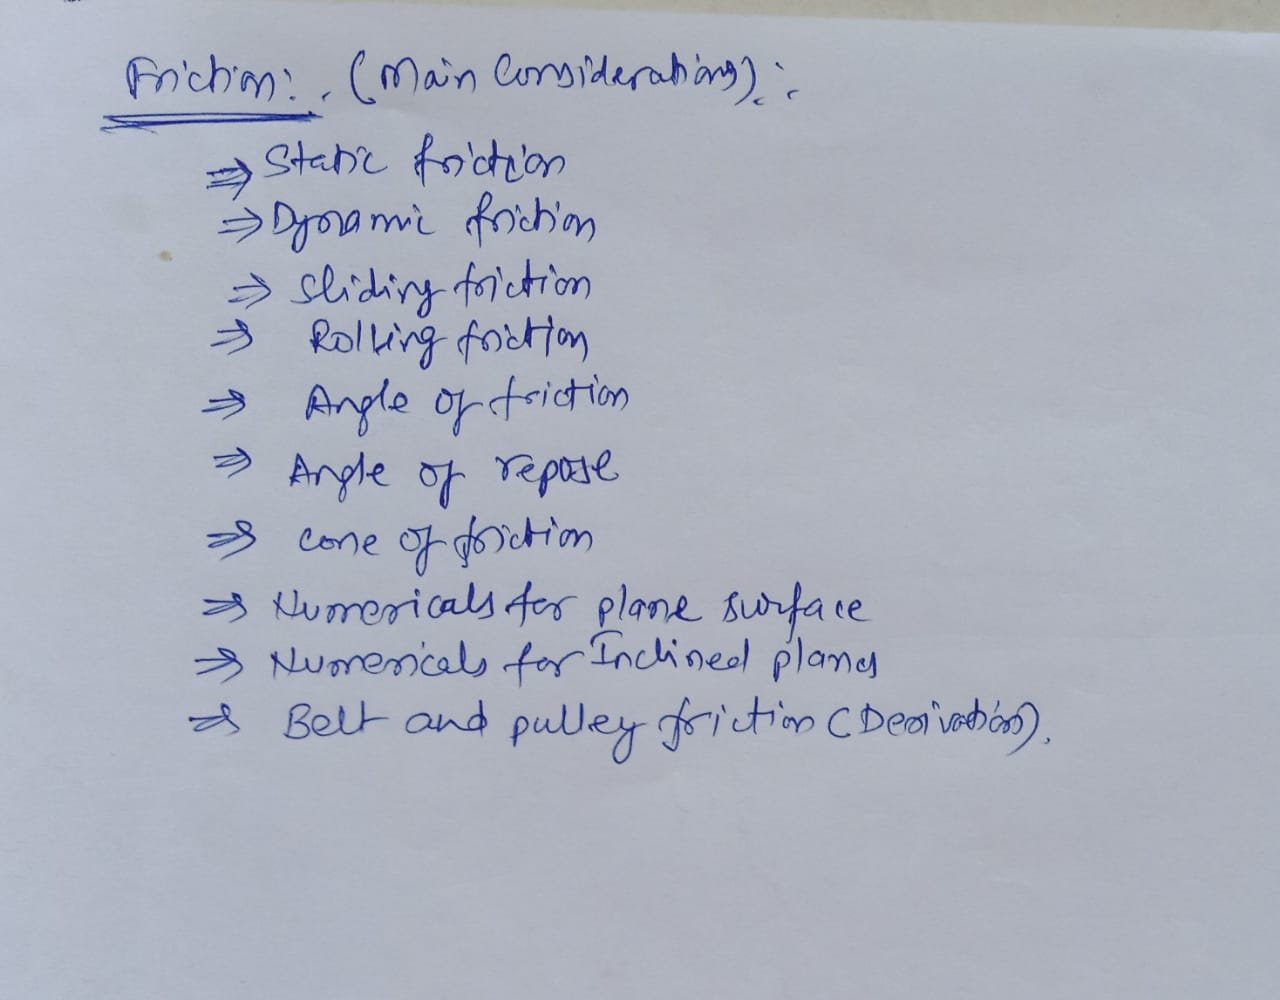 Friction:. (Main Considerations):
⇒ Static friction
⇒ Dynamic friction
⇒ Sliding friction
⇒ Rolling friction
⇒ Angle of friction
⇒ Angle of repose
⇒ cone of friction
⇒ Numericals for plane surface
⇒ Numericals for Inclined planes
⇒ Belt and pulley friction (Derivation).